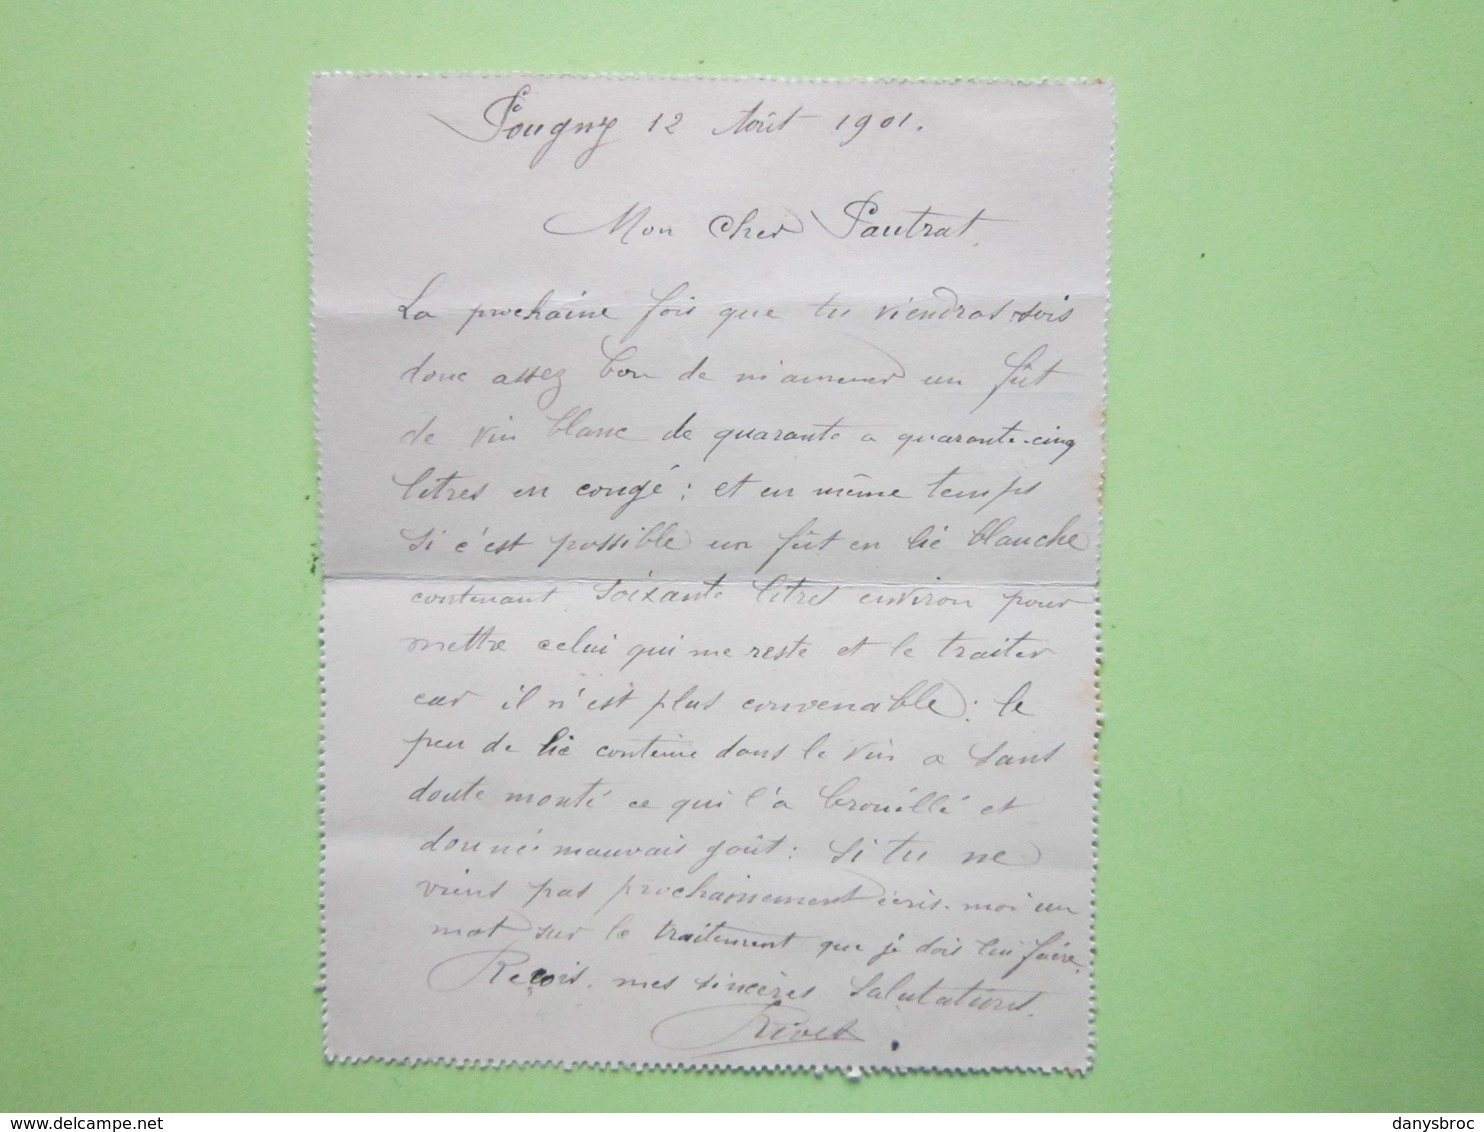 Pougny 12 Août 1901.
Mon Cher Pautrat,
La prochaine fois que tu viendras sois
donc assez bon de m'amener un fût
de vin blanc de quarante a quarante-cinq
litres en congé ; et en même temps
si c'est possible un fût en lie blanche
contenant soixante litres environ pour
mettre celui qui me reste et le traiter
car il n'est plus convenable : le
peu de lie contenue dans le vin a sans
doute monté ce qui l'a brouillé et
donné mauvais goût : si tu ne
viens pas prochainement écris-moi un
mot sur le traitement que je dois lui faire.
Reçois mes sincères salutations.
Rivet
delcampe.net
danysbroc